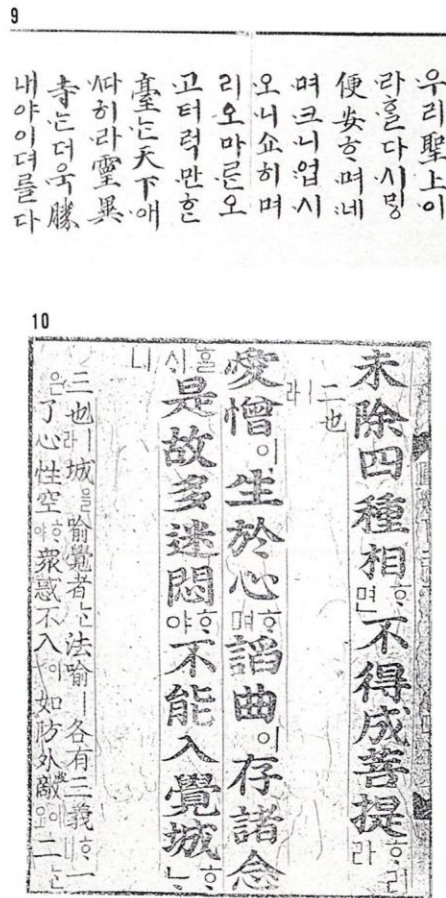 9
우리聖上이
라ᄒᆞᆯ다시ᄆᆡᆼ
便安ᄒᆞ며네
며크니업시
오니쇼히며
리오마ᄅᆞᆫ오
고터럭만ᄒᆞᆫ
臺ᄂᆞᆫ天下애
ᄯᅡ히라靈異
寺ᄂᆞᆫ더욱勝
내야이뎌를다
10
未除四種相ᄒᆞ면不得成菩提ᄒᆞ리라
二也ㅣ라
愛憎이生於心ᄒᆞ며諂曲이存諸念
ᄒᆞᆯᄉᆡ是故多迷悶ᄒᆞ야不能入覺城ᄒᆞᄂᆞ
니
三也ㅣ라城을喩覺者ᄂᆞᆫ法喩ㅣ各有三義ᄒᆞ니一
ᄋᆞᆫ了心性空ᄒᆞ야衆惑不入이如防外敵이오二ᄂᆞᆫ